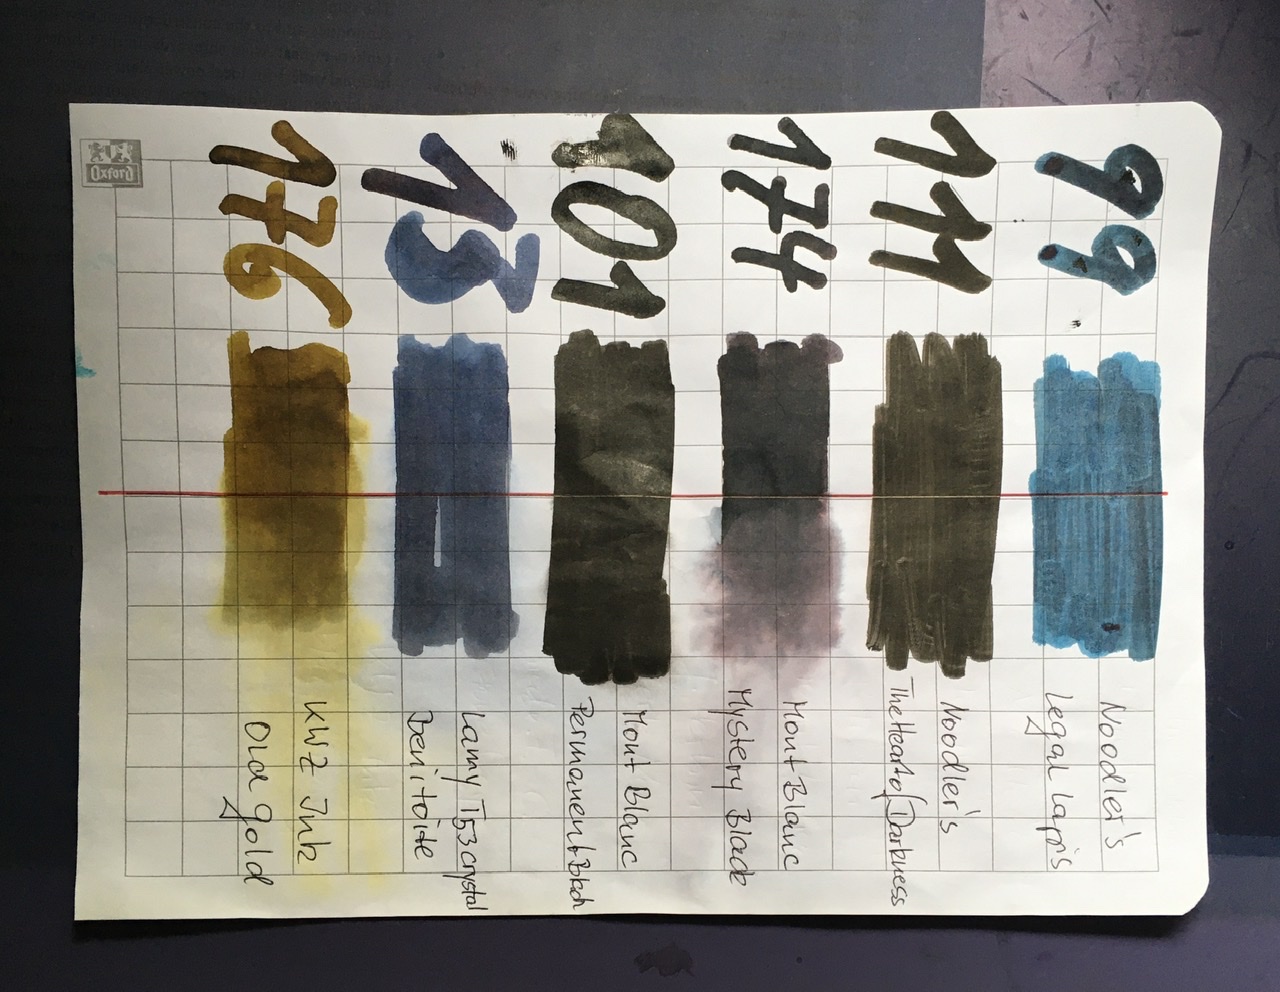 99
Noodler's
Legal Lapis
111
Noodler's
The Heart of Darkness
174
Mont Blanc
Mystery Black
101
Mont Blanc
Permanent Black
13
Lamy T53 crystal
Benitoite
176
KWZ Ink
Old Gold
Oxford